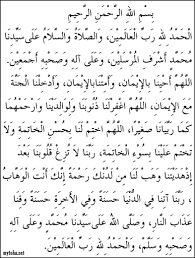 بِسْمِ اللهِ الرَّحْمٰنِ الرَّحِيْمِ
الْحَمْدُ لِلَّهِ رَبِّ الْعَالَمِيْنَ، وَالصَّلَاةُ وَالسَّلَامُ عَلَى سَيِّدِنَا
مُحَمَّدٍ أَشْرَفِ الْمُرْسَلِيْنَ، وَعَلَى آلِهِ وَصَحْبِهِ أَجْمَعِيْنَ.
اللَّهُمَّ أَحْيِنَا بِالْإِيْمَانِ، وَأَمِتْنَا بِالْإِيْمَانِ، وَأَدْخِلْنَا الْجَنَّةَ
مَعَ الْإِيْمَانِ، اللَّهُمَّ اغْفِرْ لَنَا ذُنُوْبَنَا وَلِوَالِدَيْنَا وَارْحَمْهُمَا
كَمَا رَبَّيَانَا صَغِيْرًا، اللَّهُمَّ اخْتِمْ لَنَا بِحُسْنِ الْخَاتِمَةِ وَلَا
تَخْتِمْ عَلَيْنَا بِسُوْءِ الْخَاتِمَةِ، رَبَّنَا لَا تُزِغْ قُلُوْبَنَا بَعْدَ
إِذْ هَدَيْتَنَا وَهَبْ لَنَا مِنْ لَدُنْكَ رَحْمَةً إِنَّكَ أَنْتَ الْوَهَّابُ
، رَبَّنَا آتِنَا فِي الدُّنْيَا حَسَنَةً وَفِي الْآخِرَةِ حَسَنَةً وَقِنَا
عَذَابَ النَّارِ، وَصَلَّى اللهُ عَلَى سَيِّدِنَا مُحَمَّدٍ وَعَلَى آلِهِ
وَصَحْبِهِ وَسَلَّمَ، وَالْحَمْدُ لِلَّهِ رَبِّ الْعَالَمِيْنَ.